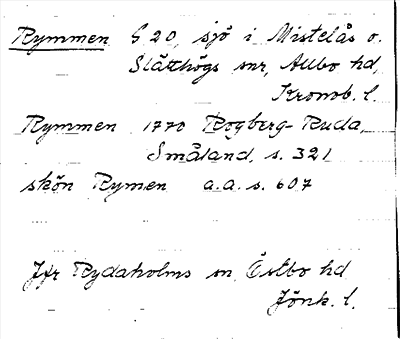 Rymmen G 20, sjö i Mistelås o.
Slätthögs snr, Allbo hd,
Kronob. l.
Rymmen 1770 Rogberg-Ruda,
Småland s. 321
skön Rymen a.a. s. 607
Jfr Rydaholms sn Östbo hd
Jönk. l.